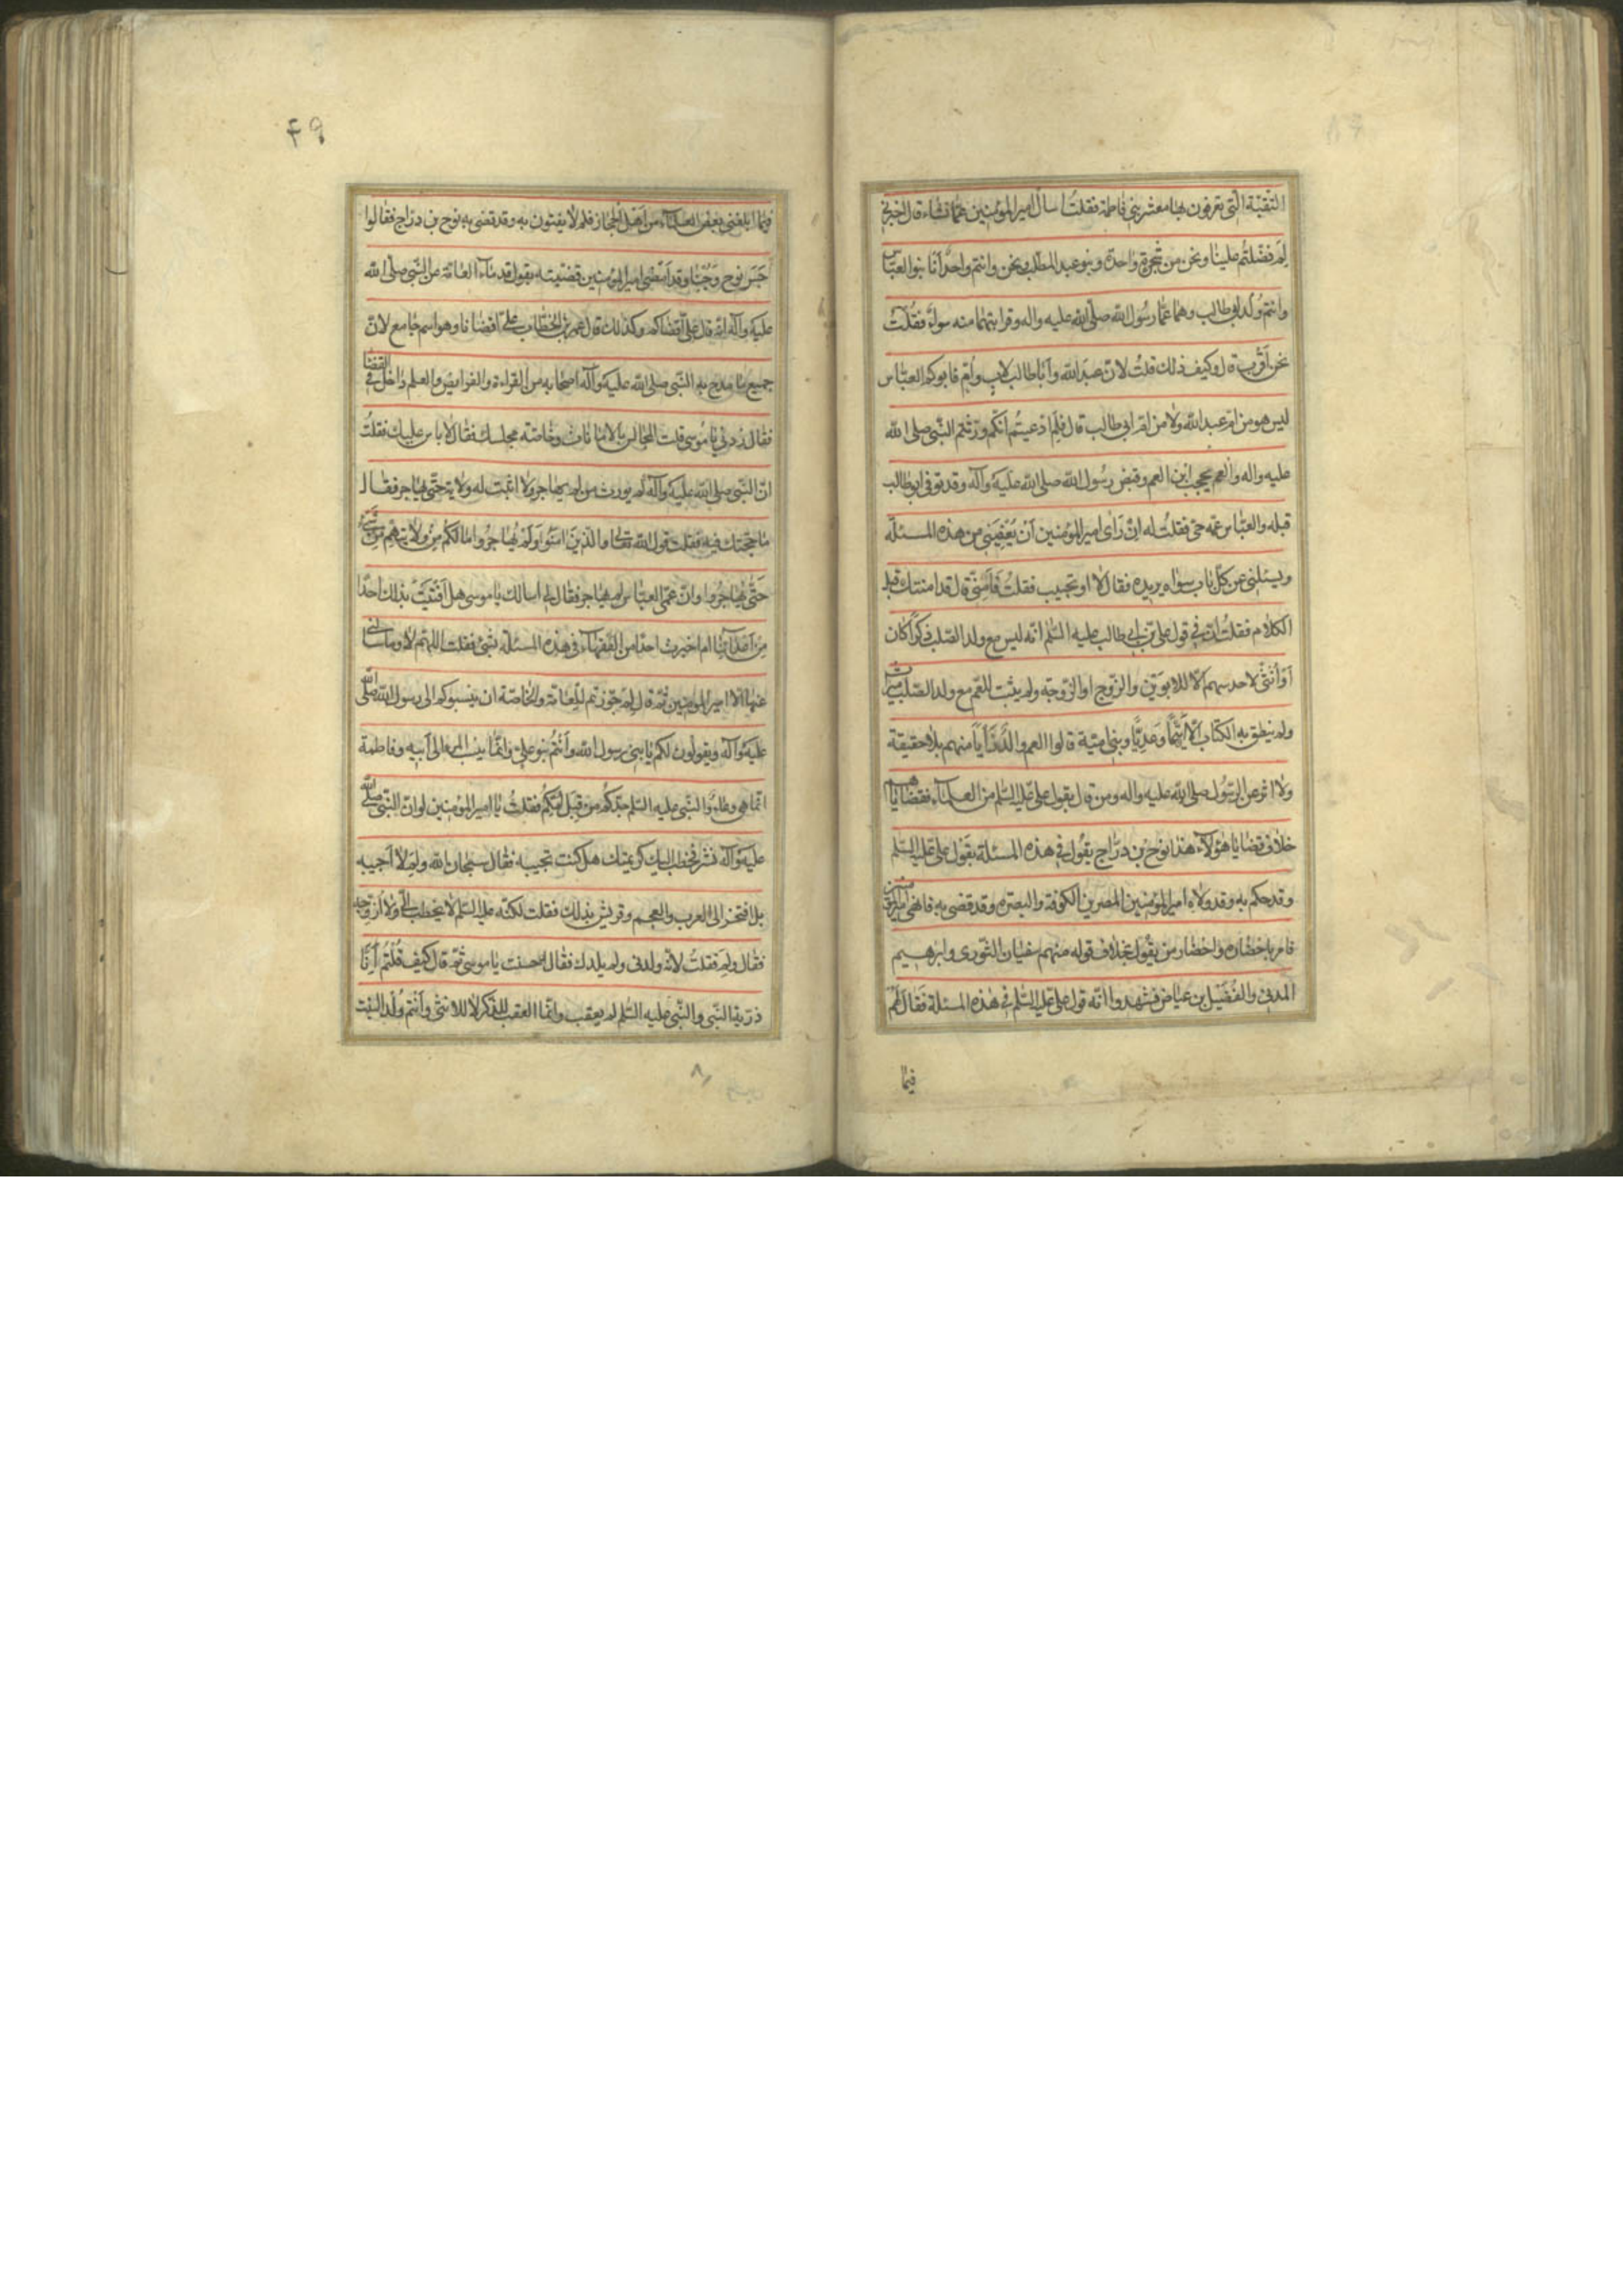 التقيّة الّتى تعرفون بها معشر بنى فاطمة فقلتُ اسأل امير المؤمنين عمّا تشاء قال اخبرنى
لِمَ فضّلتُم علينا ونحن من شجرة واحدة وبنو عبد المطلب ونحن وانتم واحد انّا بنو العبّاس
وانتم ولد ابى طالب وهما عمّا رسُول الله صلى الله عليه واله وقرابتهما منه سواء فقُلت
نحن اَقْرب قال وكيف ذلك قلتُ لانّ عبد الله وابا طالب لاب وام فابوكم العبّاس
ليس هو من امّ عبد الله ولا من امّ ابى طالب قال فلِمَ ادّعيتُم انّكم ورثتم النّبى صلى الله
عليه واله والعم يحجب ابن العم وقبض رسُول الله صلى الله عليه وآله وقد توفى ابو طالب
قبله والعبّاس عمّه حىّ فقلتُ له ان رَاى امير المؤمنين اَنْ يَعْفِيَنى من هذه المسئلة
ويسئلنى عن كلّ باب سواه يريده فقال لا او تجيب فقلتُ فَاَمِنّى قال قد امنتك قبل
الكلام فقلت انّ فى قول على بن ابى طالب عليه السّلم انّه ليس مع ولد الصّلب ذكراً كان
اَوْ اُنثى لاحد سهم الّا للابوين والزّوج او الزّوجة ولم يثبت للعم مع ولد الصّلب ميراث
ولم ينطق به الكتاب الّا اَنّ تَيْماً وعَدِيّاً وبنى اميّة قالوا العم والد رَأياً منهم بلا حقيقة
ولا اثر عن الرّسُول صلى الله عليه واله ومن قال بقول على عليه السّلم من العلماء فقضاياهم
خلاف قضايا هؤلاء هذا نوح بن درّاج يقُول فى هذه المسئلة بقَول على عليه السّلم
وقد حكم به وقد ولّاه امير المؤمنين المصرين الكوفة والبصره وقد قضى به فانهى الى امير المؤمنين
فامر باحضاره واحضار من يقُول بخلاف قوله منهم سفيان الثّورى وابرهيم
المدنى والفُضَيل بن عياض فشهدوا انّه قول على عليه السّلم فى هذه المسئلة فقَال لَهُمْ
فيما
۴۹
فيما ابلغنى بعض العلماء من اَهْل الحجاز فلم لا تفتون به وقد قضى به نوح بن درّاج فقالوا
جَسَرَ نوح وَجَبُنّا وقد اَمْضى امير المؤمنين قضيّته بقول قدماء العامّة عن النّبى صلى الله
عليه وآله انه قال علىّ اقضاكم وكذلك قال عمر بن الخطاب علىّ اقضانا وهو اسم جامع لانّ
جميع ما مدح به النّبى صلى الله عليه وآله اصحابه من القراءة والفرايض والعلم داخل فى القضا
فقال زدنى يا موسى قلت المجالس بالامانات وخاصّة مجلسك فقال لا باس عليك فقلتُ
انّ النّبى صلى الله عليه وآله لم يورث من لم يهاجر ولا اثبت له ولاية حتّى يهاجر فقال
ما حجّتك فيه فقلت قول الله تعالى والّذين آمنُوا وَلَمْ يُهاجِرُوا مَا لَكُمْ مِنْ وَلايَتِهِمْ مِنْ شَىْءٍ
حَتّى يُهاجِرُوا وانّ عمّى العبّاس لم يهاجر فقال لى اسالك يا موسى هل اَفْتَيْتَ بذلك احداً
مِن اَعْدائِنا ام اخبرت احداً من الفقهاء فى هذه المسئلة بشئ فقلت اللهم لا وما سألنى
عنها الّا امير المؤمنين ثم قال لِمَ جوّزتم للعامّة والخاصّة ان ينسبوكم الى رسول الله صلى الله
عليه وآله ويقولون لكم يا بنى رسول الله واَنْتُم بنو على وانّما ينسب المرء الى اَبيه وفاطمة
انّما هى وعاء والنّبى عليه السّلم جدّكم من قِبَل اُمّكُم فقلتُ يا امير المؤمنين لو انّ النّبى صلى الله
عليه وآله نشر فخطب اليك كريمتك هل كنت تجيبه فقال سبحان الله ولِمَ لا اُجيبه
بل افتخر الى العرب والعجم وقريش بذلك فقلت لكنّه عليه السّلم لا يخطب الىّ ولا اُزوّجه
فقال ولِمَ فقلتُ لانّه ولدنى ولم يلدك فقال احسنت يا موسى ثمّ قال كيف قُلتُم اِنّا
ذريّة النّبى والنّبى عليه السّلم لم يعقب وانّما العقب للذّكر لا للانثى واَنْتُم وُلْد البنت